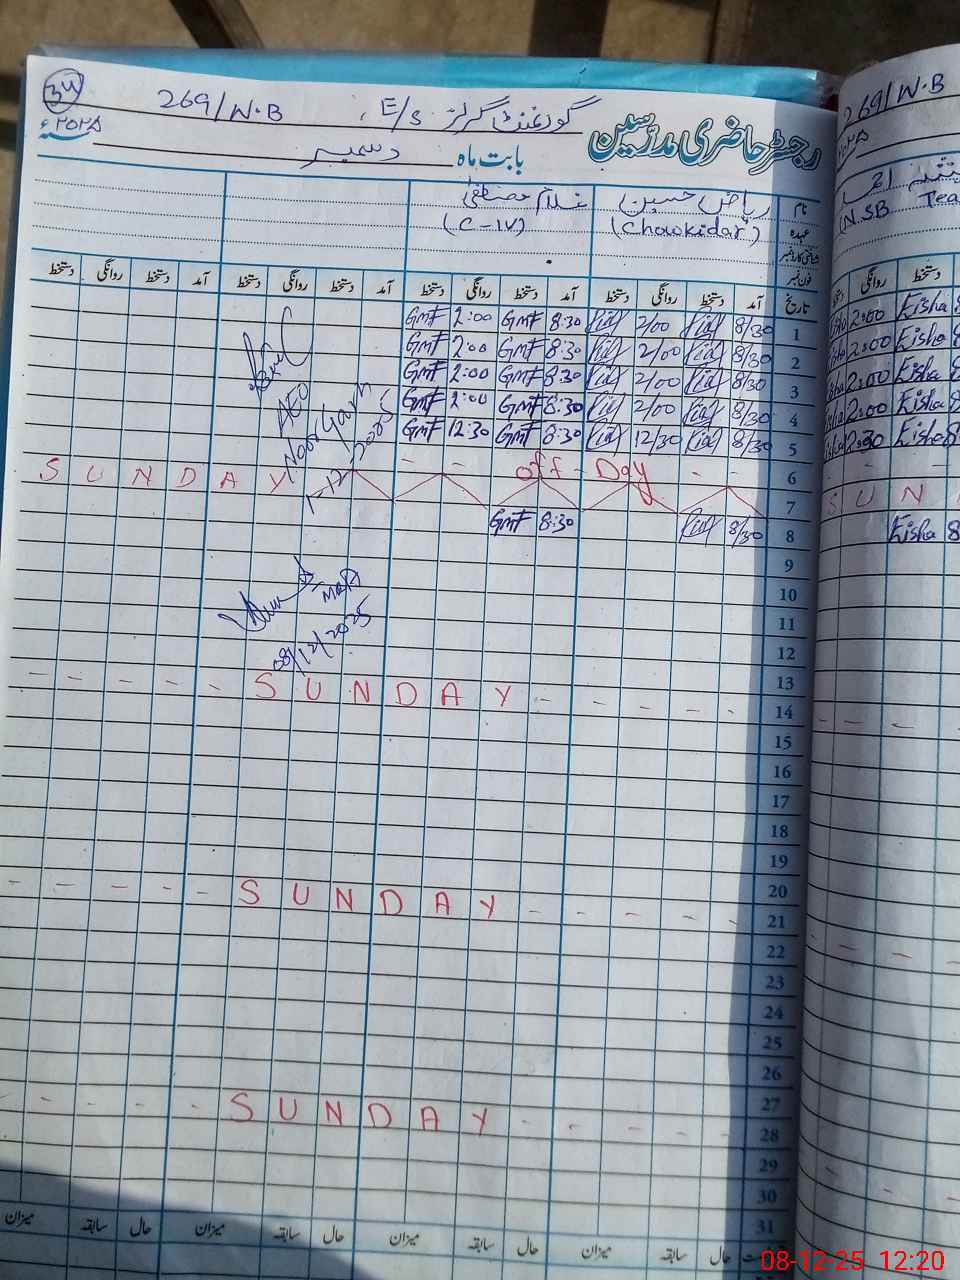 34
269/W.B گورنمنٹ گرلز E/S
رجسٹر حاضری مدرسین
۲۰۲۵ء
بابت ماہ دسمبر
نام ریاض حسین غلام مصطفیٰ
عہدہ (Chowkidar) (C-IV)
شناختی کارڈ نمبر
فون نمبر
تاریخ آمد دستخط روانگی دستخط آمد دستخط روانگی دستخط آمد دستخط روانگی دستخط آمد دستخط روانگی دستخط
1 8/30 2/00 8:30 GMF 2:00 GMF
2 8/30 2/00 8:30 GMF 2:00 GMF
3 8/30 2/00 8:30 GMF 2:00 GMF
4 8/30 2/00 8:30 GMF 2:00 GMF
5 8/30 12/30 8:30 GMF 12:30 GMF
6 - - off - Day - -
7 SUNDAY
8 8/30 8:30 GMF
AEO
Noor Garh
1-12-2025
08/12/2025
9
10
11
12
13
14 - - - - - SUNDAY - - - - - -
15
16
17
18
19
20
21 - - - - - SUNDAY - - - - -
22
23
24
25
26
27
28 - - - - SUNDAY - - - - -
29
30
31
حال سابقہ میزان حال سابقہ میزان حال سابقہ میزان حال سابقہ میزان
269/W.B
(N.SB Tea
روانگی دستخط
2:00 Eisha 8
2:00 Eisha 8
2:00 Eisha 8
2:00 Eisha 8
2:30 Eisha 8
S U N
Eisha 8
08-12-25 12:20